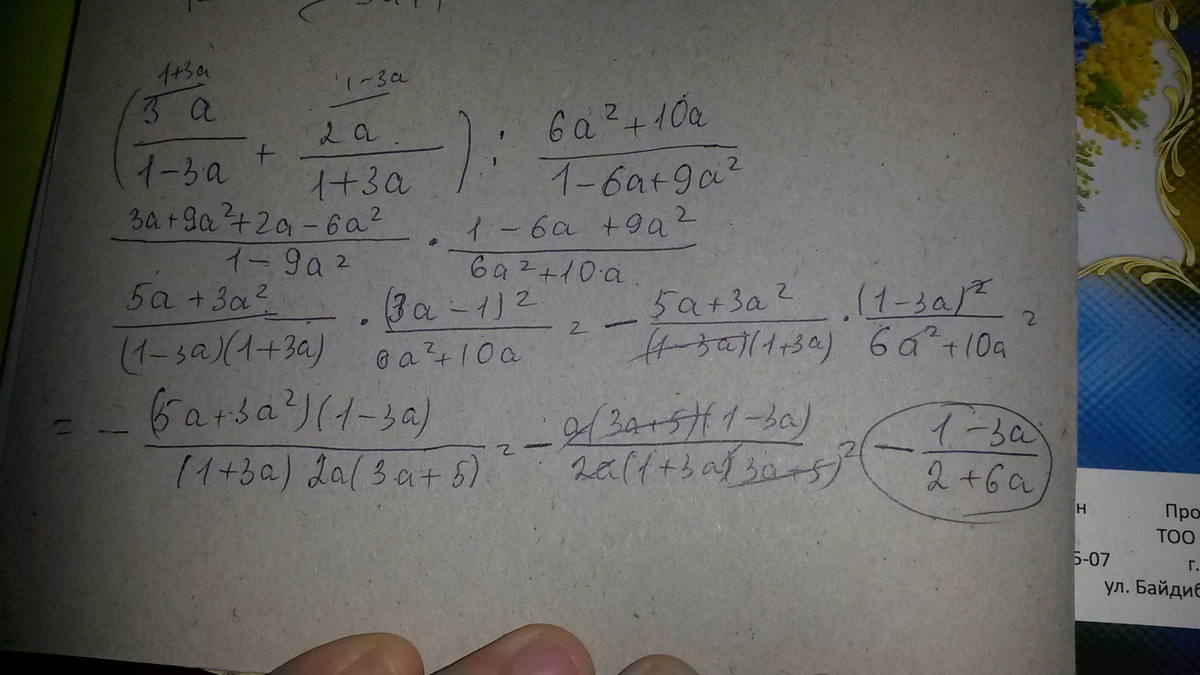 1+3a 1-3a
( 3a/(1-3a) + 2a/(1+3a) ) : (6a²+10a)/(1-6a+9a²)
(3a+9a²+2a-6a²)/(1-9a²) · (1-6a+9a²)/(6a²+10a)
(5a+3a²)/((1-3a)(1+3a)) · (3a-1)²/(6a²+10a) = - (5a+3a²)/((1-3a)(1+3a)) · (1-3a)²/(6a²+10a) =
= - (5a+3a²)(1-3a)/((1+3a) 2a(3a+5)) = - a(3a+5)(1-3a)/(2a(1+3a)(3a+5)) = - (1-3a)/(2+6a)
н
Про
ТОО
Б-07
г.
ул. Байдиб